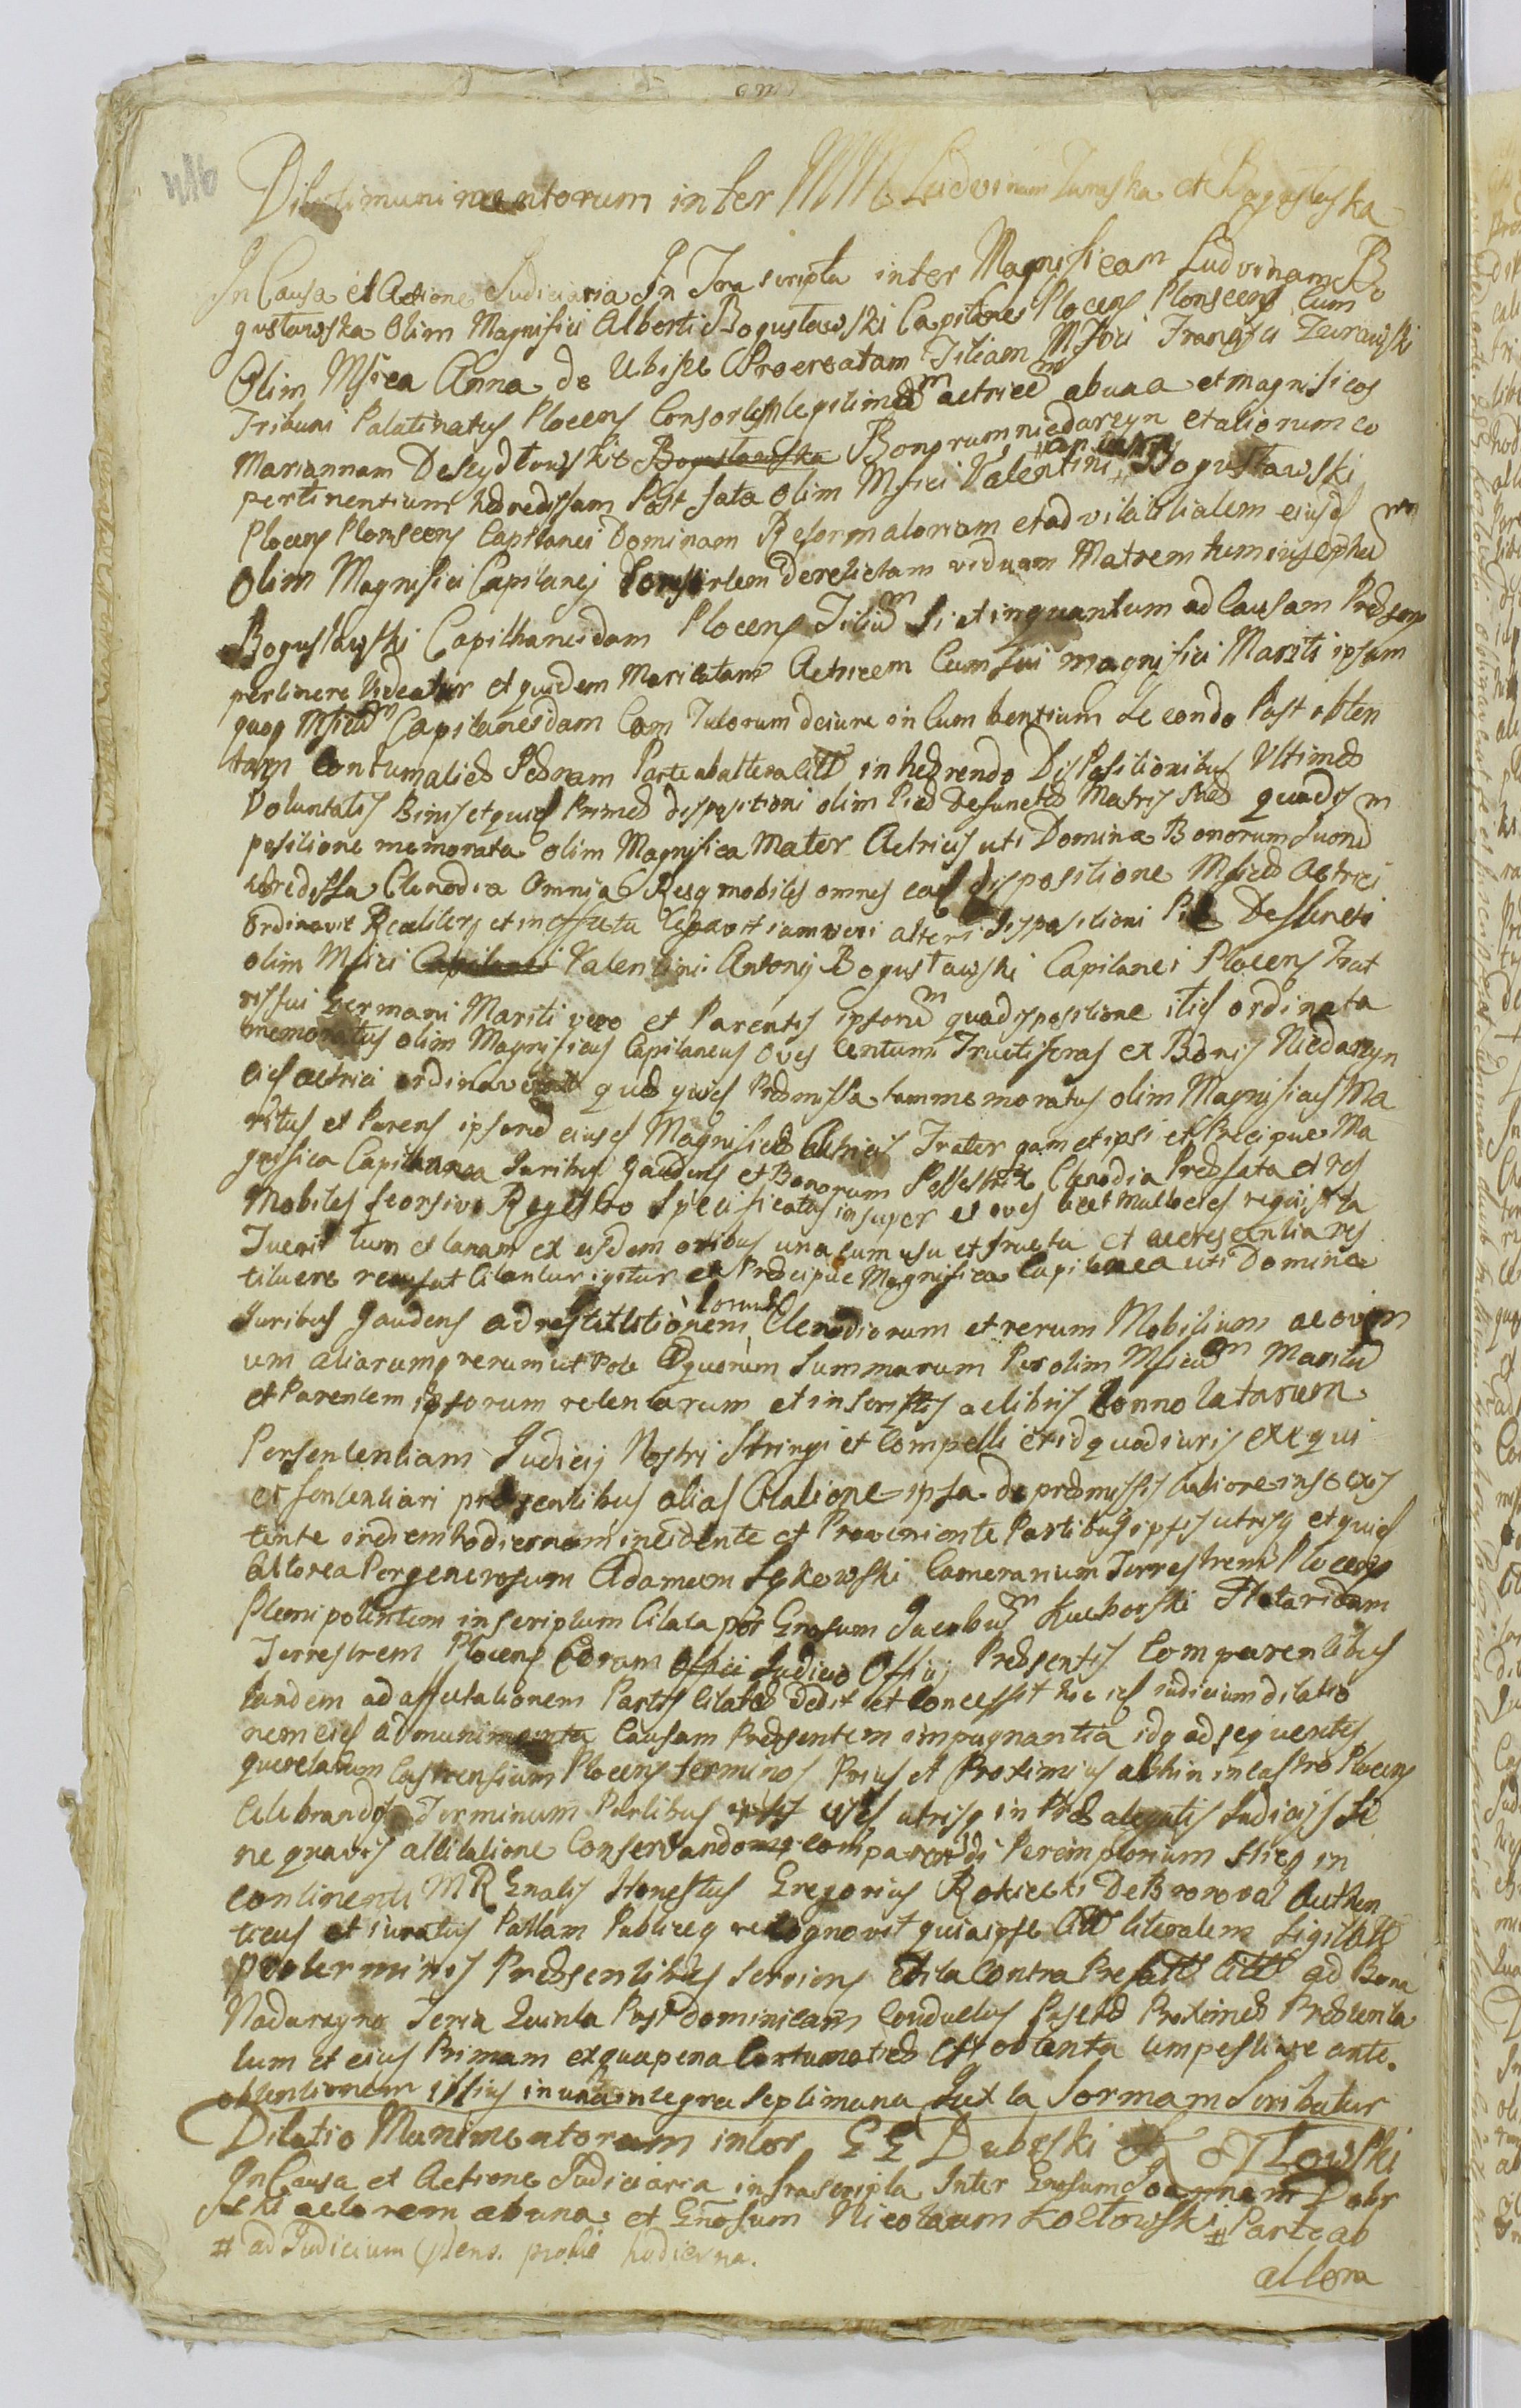 416
Dilatio munimentorum inter MM Ludvinam Zuraska et Bogustaska
In Causa et Actione Judiciaria In Fra scripta inter Magnificam Ludvinam Bo
gustawska Olim Magnifici Alberti Bogustawski Capitanei Plocens Plonscens Cum
Olim Mfica Anna de Ubisze Procreatam Filiam Mfici Francisci Zurawski
Tribuni Palatinatus Plocens Consortem legitimam actricem ab una et magnificos
Mariannam De Scydtowskie Bogustawska Bonorum niedarzyn et aliorum eo
pertinentium hæredissam Post fata olim Mfici Valentini Antonii Bogustawski
Plocens Plonscens Capitanei Dominam Reformatoriam et advitalitialem eiusd
Olim Magnifici Capitanej Consortem derelictam viduam Matrem tum iosephum
Bogustawski Capithaneidam Plocens Filium si et inquantum ad Causam Præsens
pertinere videatur et quidem Maritatam Actricem Cum sui magnifici Mariti ipsum
quoq Mficum Capitaneidam Cam Tutorum de iure in Cum bentium se condo Post obten
tam Contumaliæ Pænam Parte ab altera citt inhærendo DisPositionibus Ultimæ
Voluntatis Binis et quid Primæ dispositioni olim Piæ Defunctæ Matris suæ quadis
positione memorata olim Magnifica Mater Actricis uti Domina Bonorum Suorum
hæredissa Clenodia Omnia Resq mobiles omnes ead dispositione Mficæ Actrici
Ordinavit Realiter et in effectu legavit iam veri alteri dispositioni Piæ Defuncti
olim Mfici Capitanei Valentini Antonij Bogustawski Capitanei Plocens Frat
ris sui Germani Mariti vero et Parentis ipsorum quadispositione itid ordinata
memoratus olim Magnificus Capitaneus Oves Centum Fructiferas ex Bonis Niedarzyn
eid actrici ordinaverat quæ quid Præmissa tum memoratus olim Magnificus Ma
ritus et Parens ipsorum eiusd Magnificæ Actricis Frater quam et ipsi et Præcipue Ma
gnifica Capitanea Juribus gaudens et Bonorum Possestrix Clenodia Præfata et res
Mobiles seorsivo Regestro Specificatas insuper et oves licet multocies requisita
Fuerit tum et lanam ex eisdem ovibus una cum usu et fructu et accrescentia res
tituere recusat Citantur igitur et Præcipue Magnifica Capitanea uti Domina
Juribus gaudens ad restitutionem Eorund Clenodiorum et rerum Mobilium ac ovium
um aliarumq rerum ut Pote Æquorum Summarum Per olim Mficum Maritum
et Parentem ipsorum retentarum et in scriptis ac libris Connotatarum
Per sententiam Judicij Nostri Stringi et Compelli et id quod iuris exequi
et sententiari præsentibus alias Citatione ipsa de præmissis latiore in se exis
tente in diem hodiernam incidente et Proveniente Partibus ipsis utrisq et quid
Actorea Per generosum Adamum Sykowski Camerarium Terrestrem Plocens
Pleni potentem inscriptum Citata per Gnosum Jacobum Kuchorski Notaridam
Terrestrem Plocens Coram Officii Judicio Officij Præsentis Comparentibus
tandem ad affectationem Partis Citatæ Dedit et Concessit hoc id iudicium dilatio
nem eid ad munimenta Causam Præsentem impugnantia idq ad sequentes
querelarum Castrensium Plocens terminos Prius et Proximius abhin in Castro Plocens
Celebrandos Terminum Partibus ipsis eisd utrisq in Præ alegatis Judicijs Si
ne quavis attilatione Conservandoq comparendi Peremptorium Hicq in
continenti MR Gnalis Honestus Gregorius Rokicki De Bronovai Authen
ticus et iuratus Pallam Publiceq recognovit quia ipse Citt literalem Sigillatt
Pro terminis Præsentibus Serviens et ita Contra Prefatt Citt ad Bona
Nadarzyno Feria Quinta Post dominicam Conductus Paschæ Proximæ Præterita
tum et eius Primam ex qua pena Contumatiæ est obtenta tempestive ante
obtentionem istius in una integra septimana Juxta formam scribatur
Dilatio Munimentorum inter GG Dubrski et Koztowski
In Causa et Actione Judiciaria infrascripta Inter Gnosum Joannem Dobr
ski actorem ab una et Gnosum Nicolaum Koztowski # Parte ab
# ad Judicium Plens. hodierna.
altera